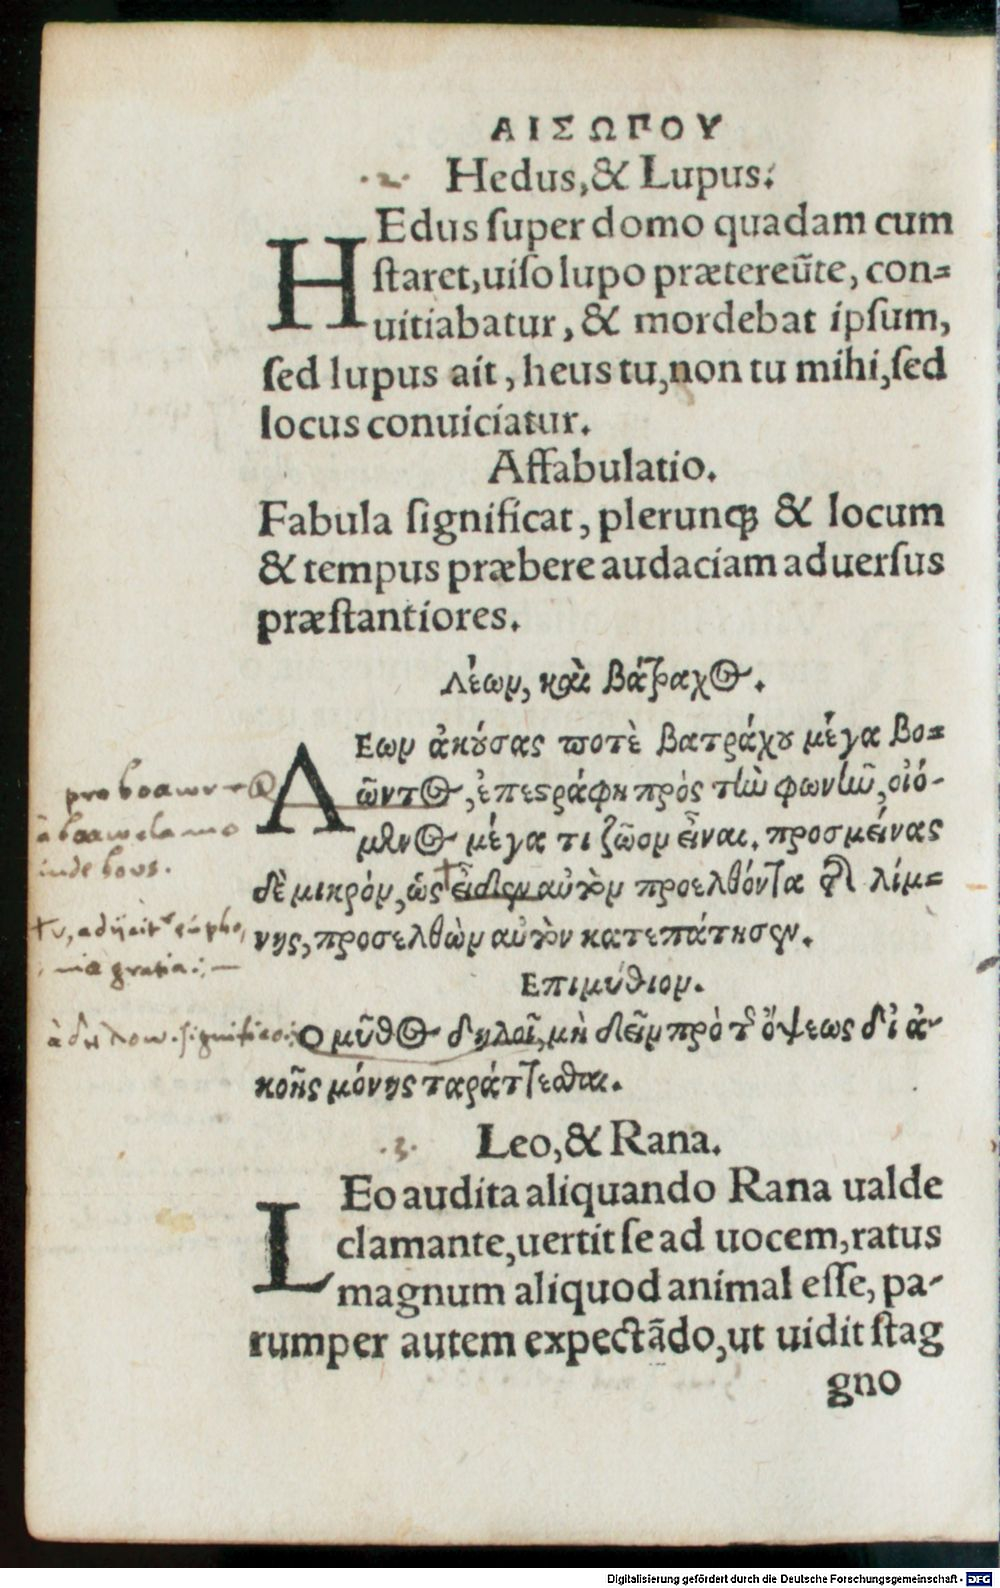 ΑΙΣΩΠΟΥ
.2. Hedus,& Lupus.
HEdus ſuper domo quadam cum
ſtaret,uiſo lupo prætereũte, con=
uitiabatur, & mordebat ipſum,
ſed lupus ait, heus tu,non tu mihi,ſed
locus conuiciatur.
Affabulatio.
Fabula ſignificat, plerunq; & locum
& tempus præbere audaciam aduerſus
præſtantiores.
Λέων, καὶ βάτραχος.
ΛΕων ἀκούσας ποτὲ βατράχου μέγα βο=
ῶντος, ἐπεστράφη πρὸς τὴν φωνὴν, οἰό-
μενος μέγα τι ζῶον εἶναι. προσμείνας
δὲ μικρὸν, ὡς εἶδεν αὐτὸν προελθόντα τῆς λίμ=
νης, προσελθὼν αὐτὸν κατεπάτησεν.
Επιμύθιον.
Ο μῦθος δηλοῖ, μὴ δεῖν πρὸ τῆς ὄψεως δι' ἀ-
κοῆς μόνης ταράττεσθαι.
.3. Leo,& Rana.
LEo audita aliquando Rana ualde
clamante,uertit ſe ad uocem,ratus
magnum aliquod animal eſſe, pa-
rumper autem expectãdo,ut uidit ſtag
gno
pro βοάων
à βοάω clamo
inde bous.
†ν, adijcitr euphο
nia gratia:
à δηλόω. significo:
Digitalisierung gefördert durch die Deutsche Forschungsgemeinschaft - DFG